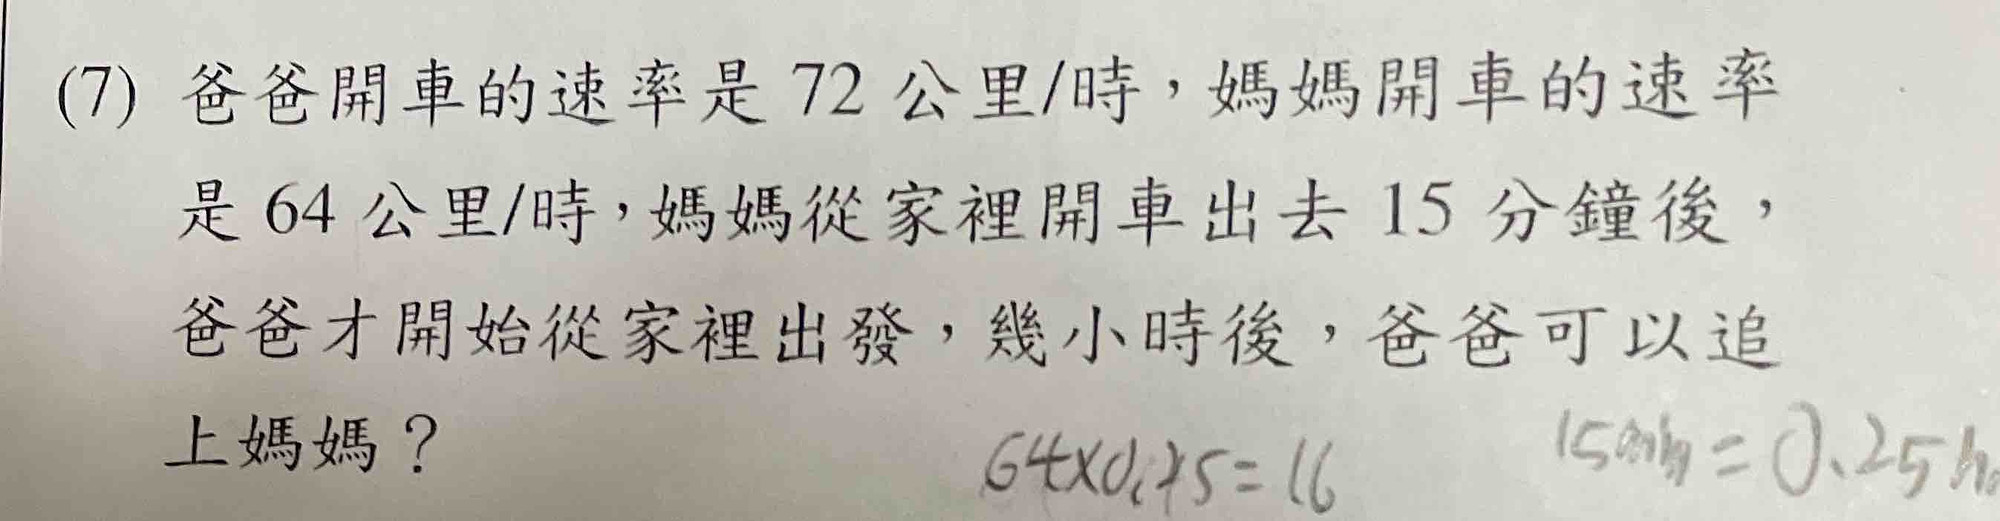 (7) 爸爸開車的速率是 72 公里/時，媽媽開車的速率
是 64 公里/時，媽媽從家裡開車出去 15 分鐘後，
爸爸才開始從家裡出發，幾小時後，爸爸可以追
上媽媽？
64×0.25=16 15min=0.25h